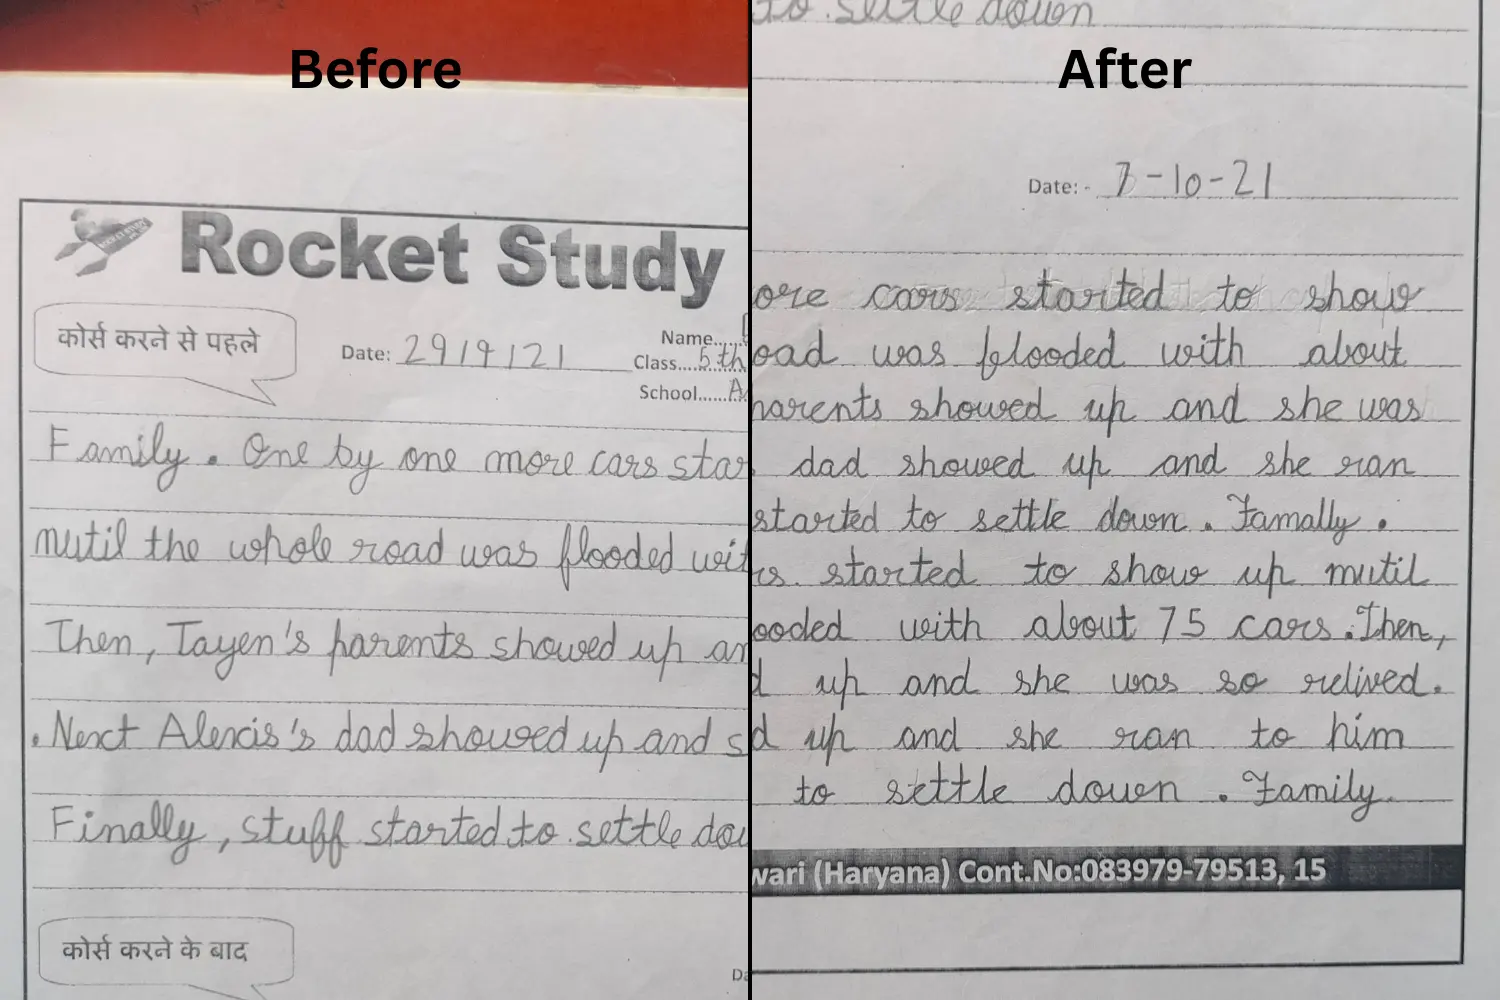 Before
Rocket Study
कोर्स करने से पहले
Date: 29/9/21
Name.....
Class....5th
School......A
Family. One by one more cars star
mutil the whole road was flooded wit
Then, Tayen's parents showed up an
. Next Alexis's dad showed up and s
Finally, stuff started to settle dou
कोर्स करने के बाद
Da
After
to settle down
Date: - 7-10-21
ore cars started to show
oad was flooded with about
parents showed up and she was
dad showed up and she ran
started to settle down. Famally.
rs. started to show up mutil
ooded with about 75 cars. Then,
d up and she was so relived.
d up and she ran to him
to settle down. Family
wari (Haryana) Cont.No:083979-79513, 15